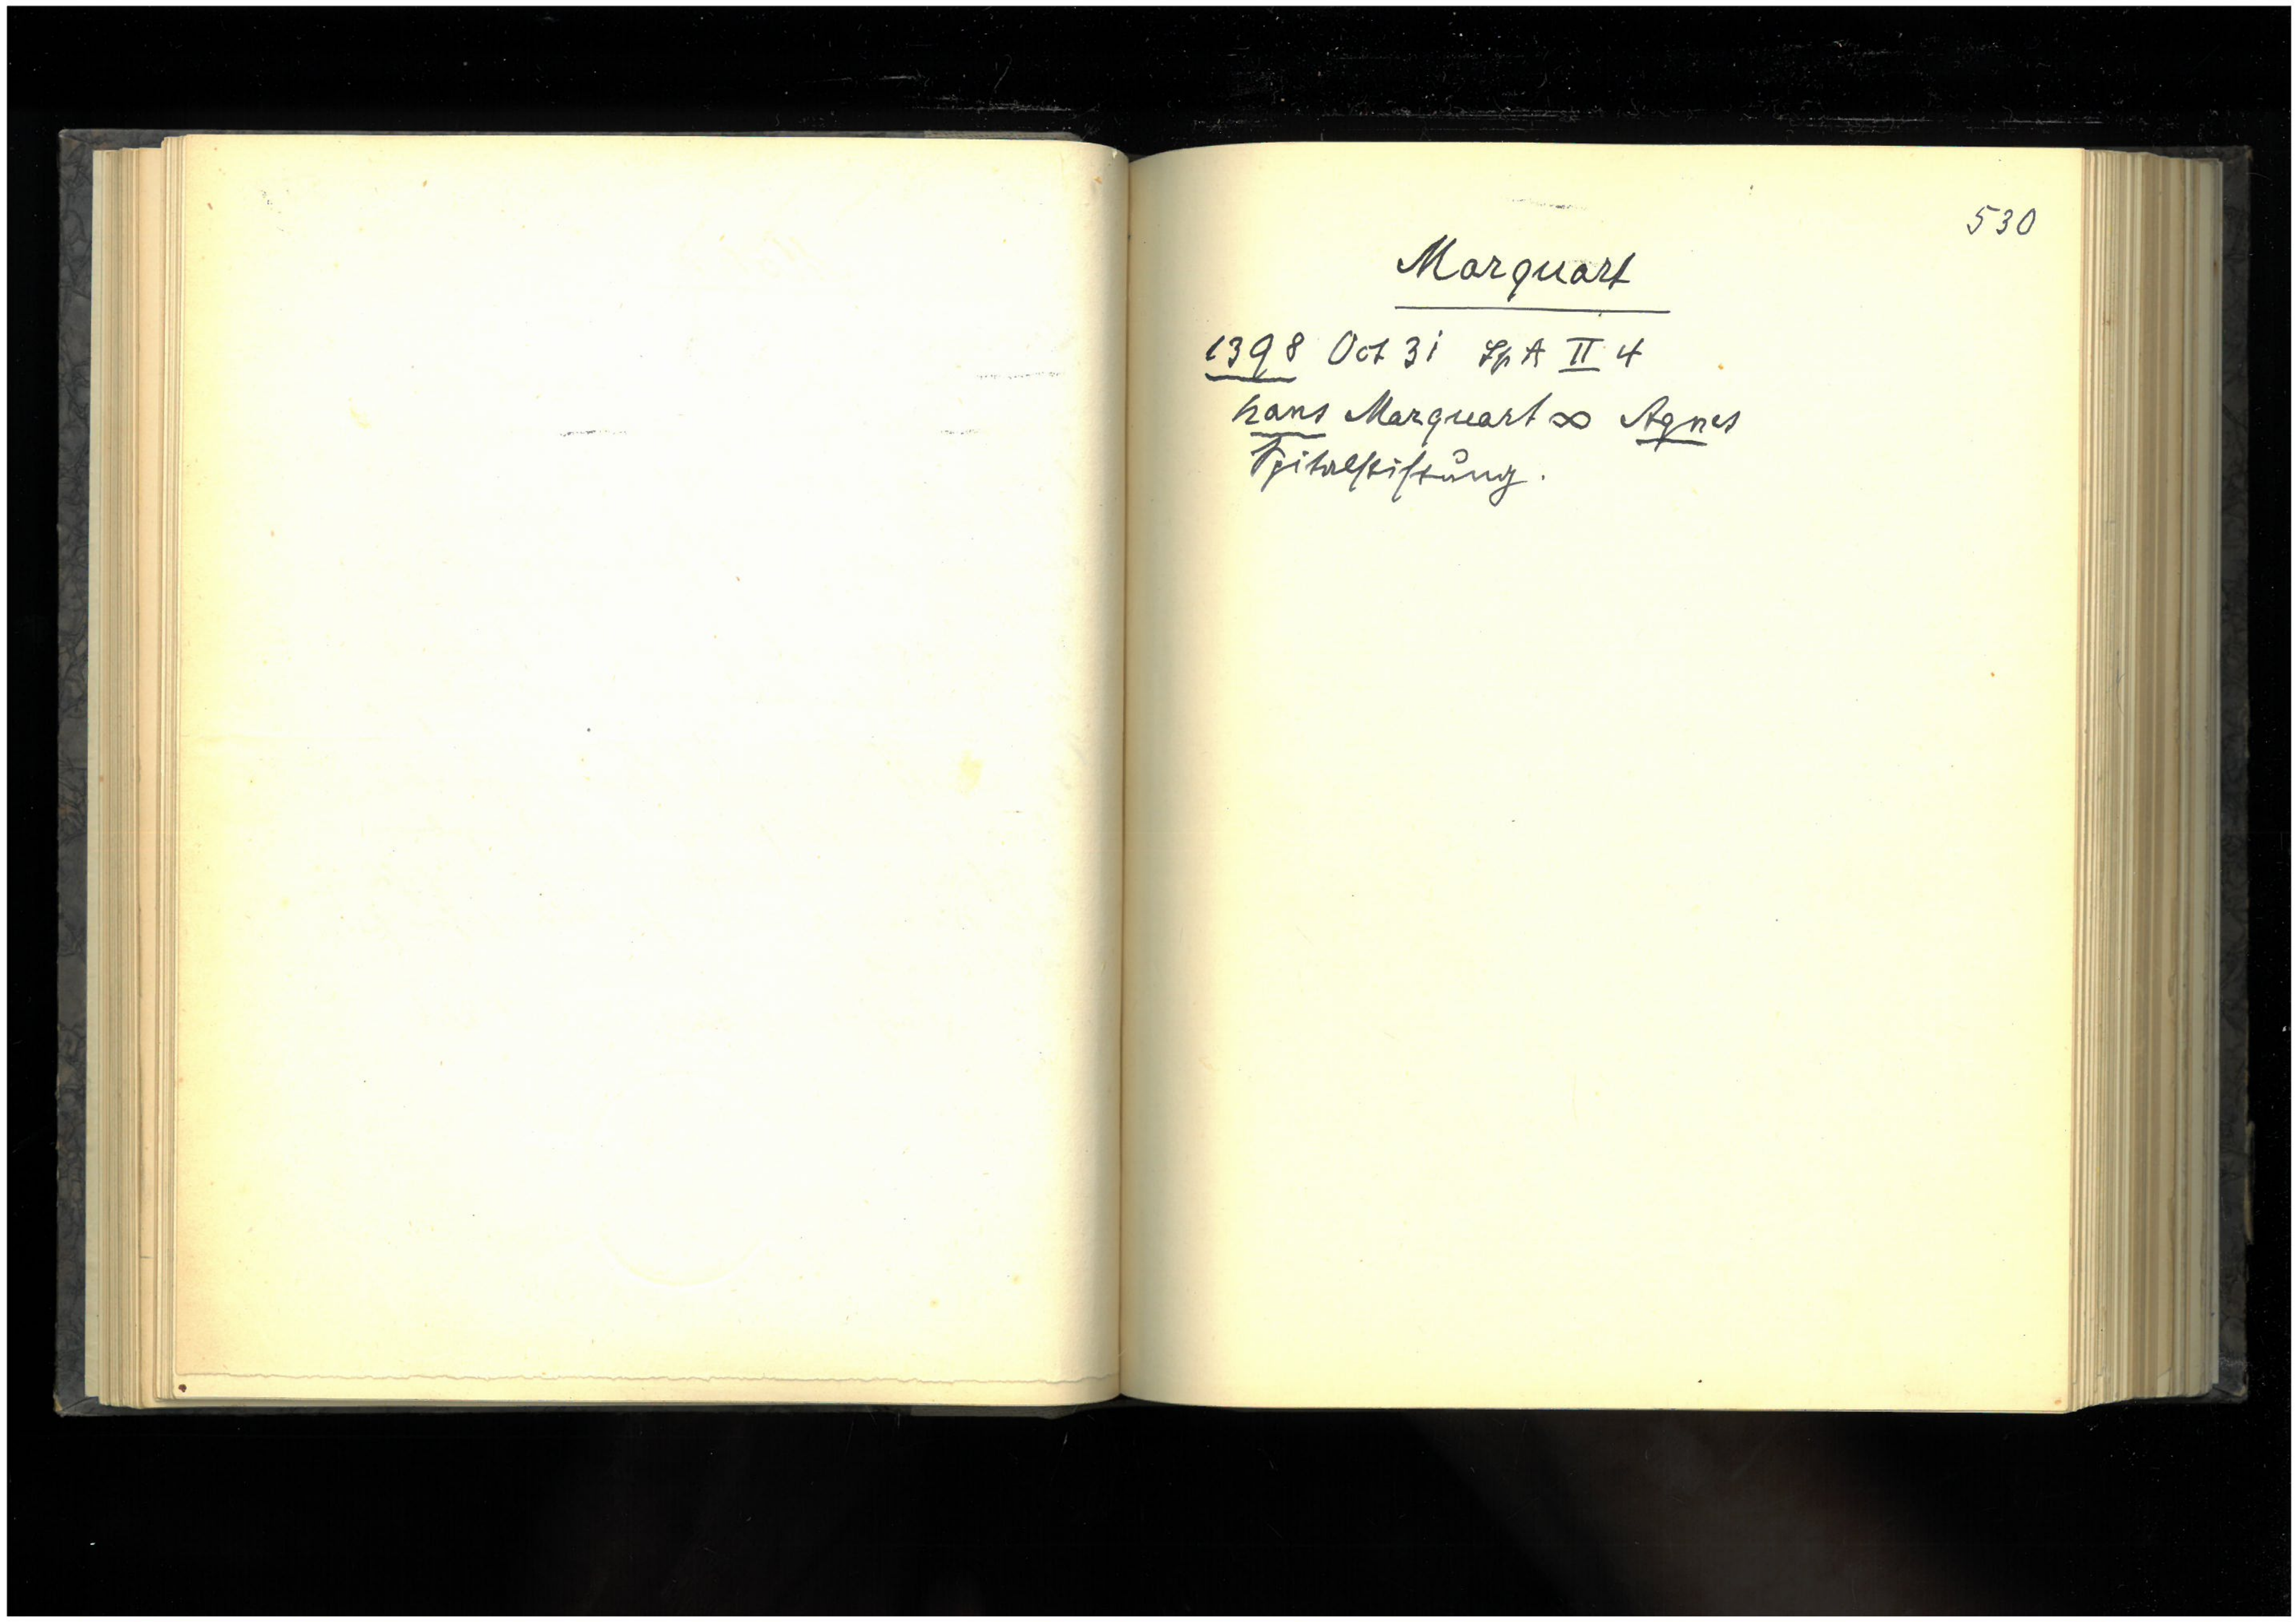 530
Marquart
1398 Oct 31 Sp A II 4
hans Marquart ∞ Agnes
Spitalstiftung.